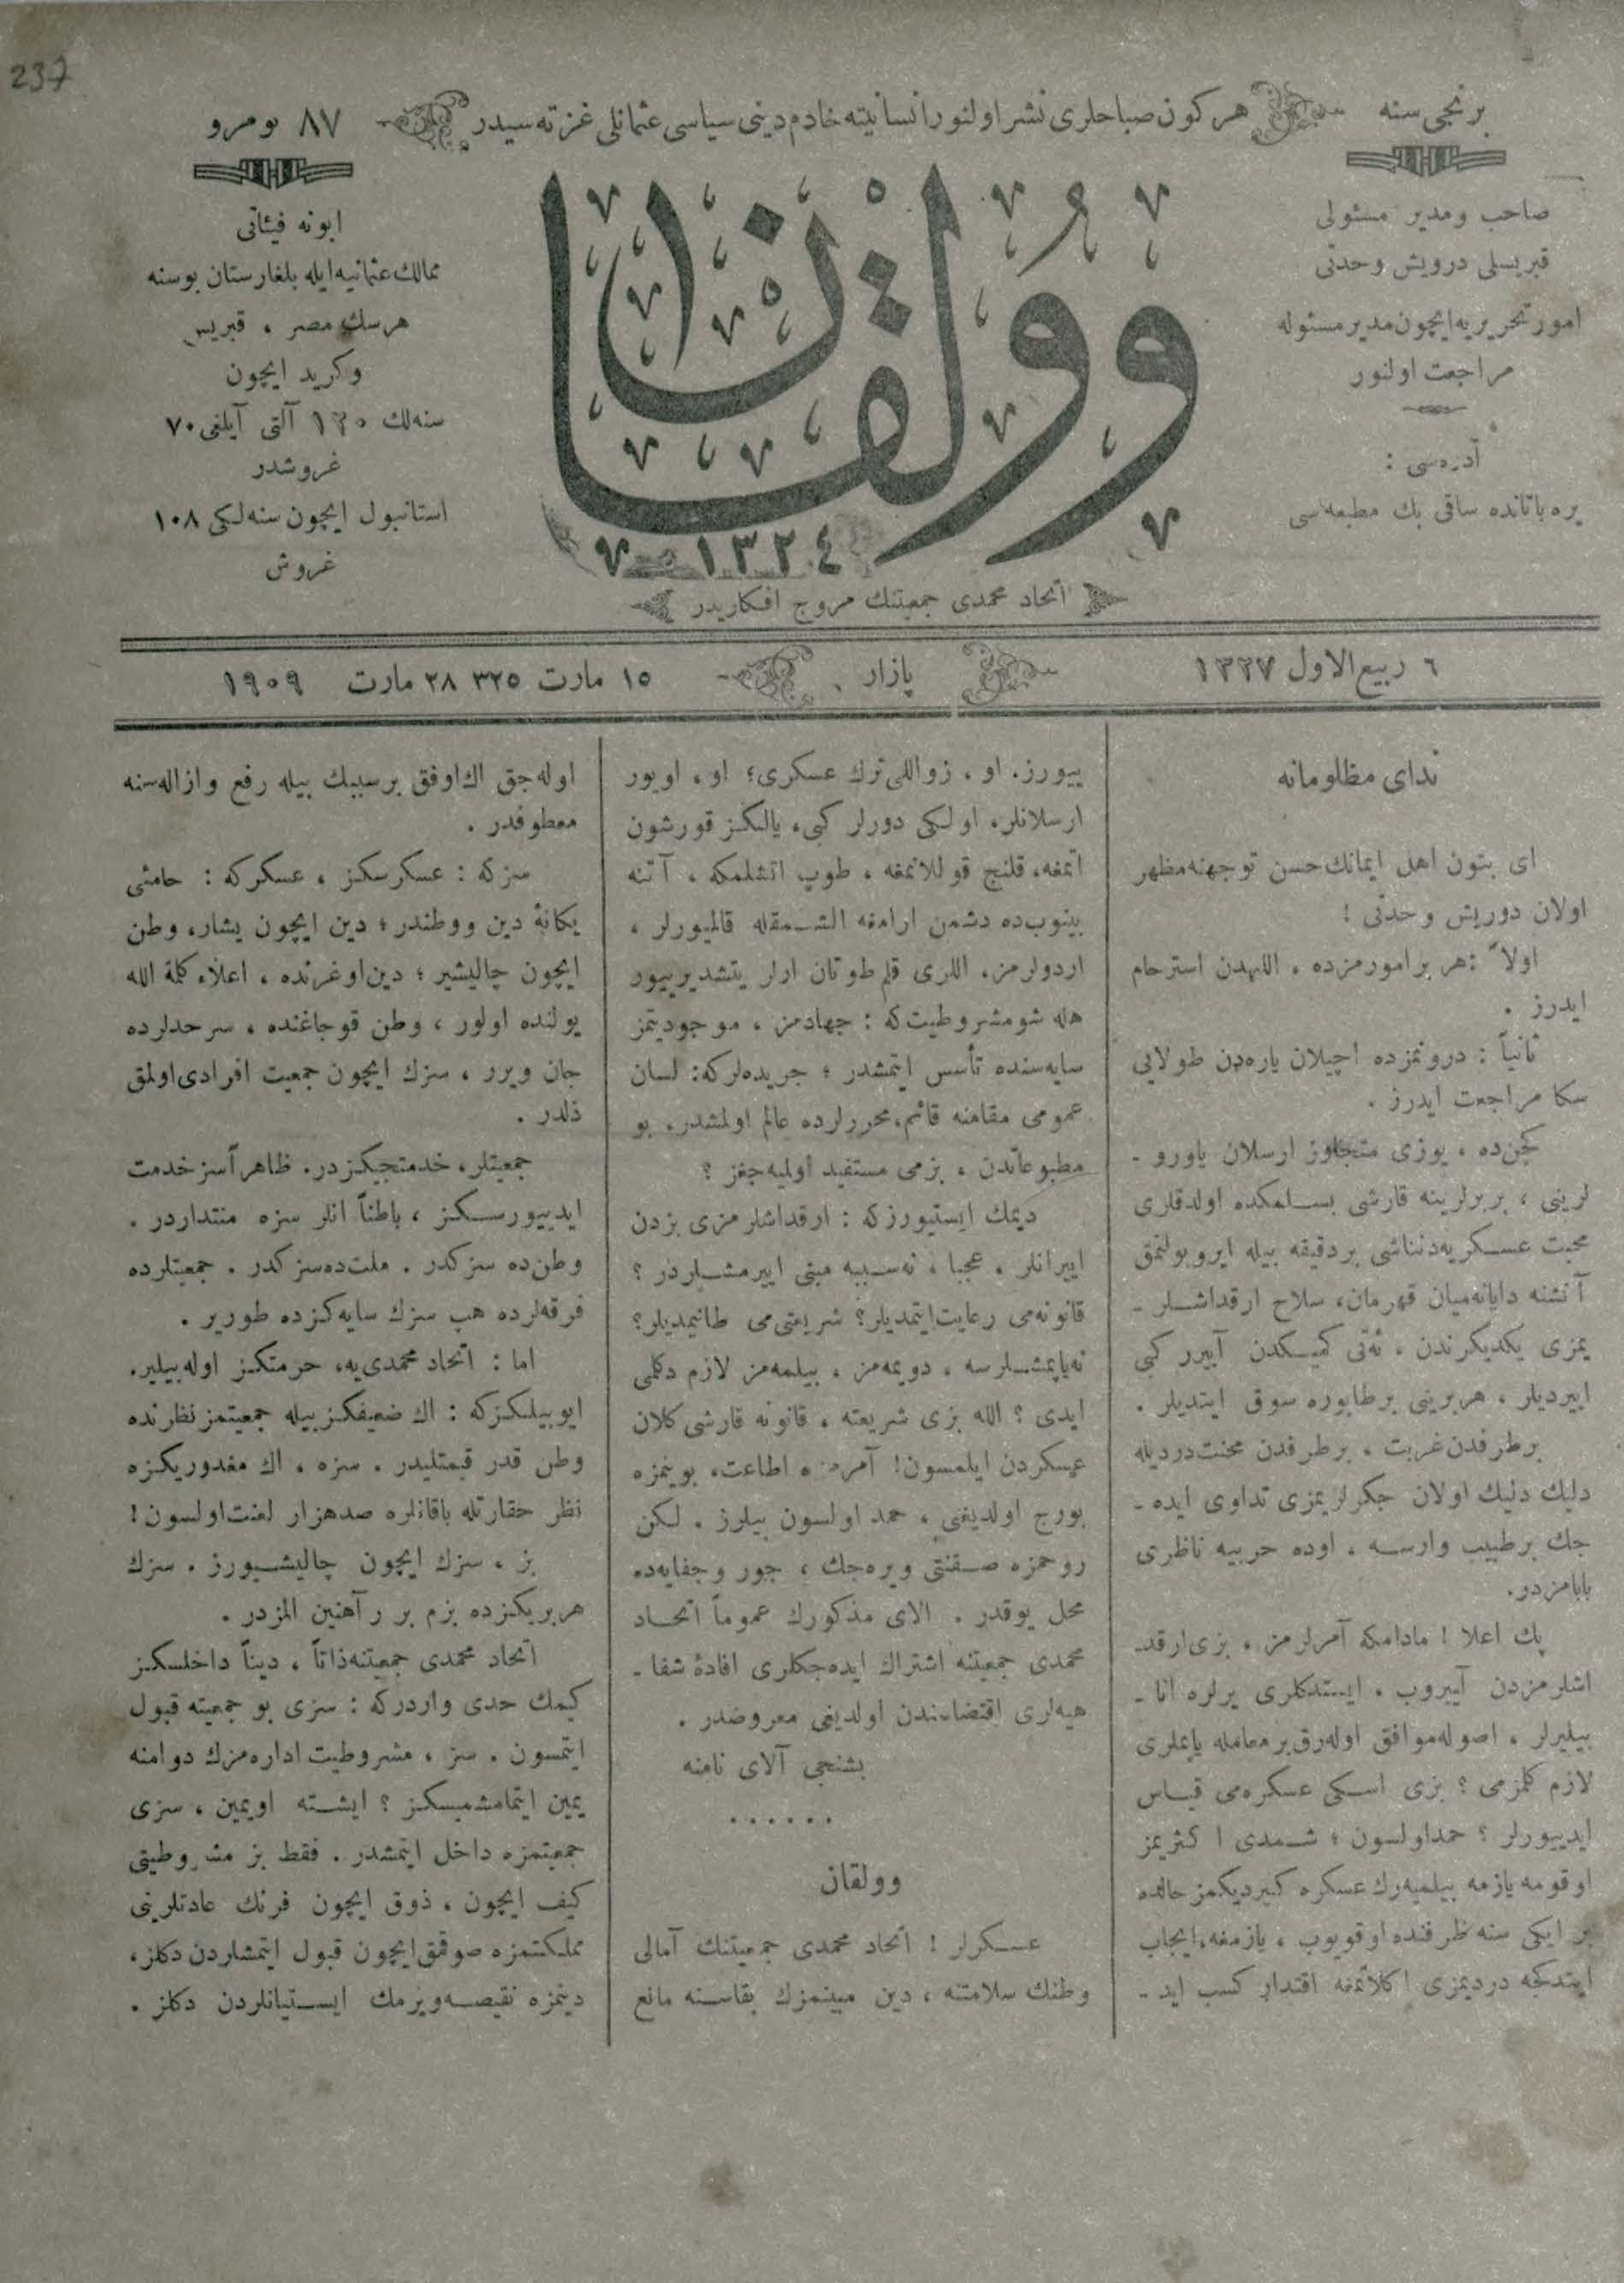 237
برنجی سنه
هر كون صباحلری نشر اولنور انسانیته خادم دینی سیاسی عثمانلی غزته سیدر
٨٧ نومرو
صاحب ومدیر مسئولی
قبریسلی درویش وحدتی
امور تحریریه ایچون مدیر مسئوله
مراجعت اولنور
آدره سی :
یره باتانده ساقی بك مطبعه سی
وولقان
١٣٢٤
اتحاد محمدی جمعیتنك مروج افكاریدر
ابونه فیئاتی
ممالك عثمانیه ایله بلغارستان بوسنه
هرسك مصر ، قبریس
وكرید ایچون
سنه لك ١٣٠ آلتی آیلغی ٧٠
غروشدر
استانبول ایچون سنه لكی ١٠٨
غروش
٦ ربیع الاول ١٣٢٧
پازار
١٥ مارت ٣٢٥ ٢٨ مارت ١٩٠٩
ندای مظلومانه
ای بتون اهل ایمانك حسن توجهنه مظهر
اولان درویش وحدتی !
اولاً : هر بر امورمزده ، اللهدن استرحام
ایدرز .
ثانیاً : درونمزده اچیلان یاره دن طولایی
سكا مراجعت ایدرز .
كچن ده ، یوزی متجاوز ارسلان یاورو -
لرینی ، بربرلرینه قارشی بسلمكده اولدقلری
محبت عسكریه دنناشی بر دقیقه بیله ایرو بولنمق
آتشنه دایانه میان قهرمان، سلاح ارقداشلر -
یمزی یكدیكرندن ، ئه تی كمیكدن آییرر كبی
اییردیلر ، هربرینی برطابوره سوق ایتدیلر .
برطرفدن غربت ، برطرفدن محنت دردیله
دلیك دلیك اولان جكرلریمزی تداوی ایده -
جك برطبیب وارسه ، اوده حربیه ناظری
بابامزدر.
پك اعلا ! مادامكه آمرلرمز ، بزی ارقد-
اشلرمزدن آییروب ، ایستدكلری یرلره اتا -
بیلیرلر ، اصوله موافق اوله رق بر معامله یاپملری
لازم كلمزمی ؟ بزی اسكی عسكره می قیاس
ایدییورلر ؟ حمد اولسون ؛ شمدی اكثریمز
اوقومه یازمه بیلمیه رك عسكره كیردیكمز حالده
بر ایكی سنه ظرفنده اوقویوب ، یازمغه، ایجاب
ایتدكجه دردیمزی اكلاتمغه اقتدار كسب اید -
ییورز. او ، زواللی ترك عسكری؛ او ، اویور
ارسلانلر، اولكی دورلر كبی، یالكز قورشون
اتمغه، قلنج قوللانمغه ، طوپ اتشلمكه ، آتنه
بینوب ده دشمن ارامغه الشمقله قالمیورلر ،
اردولرمز، اللری قلم طوتان ارلر یتشدیرییور
هله شو مشروطیت كه : جهادمز ، موجودیتمز
سایه سنده تأسس ایتمشدر ؛ جریده لركه: لسان
عمومی مقامنه قائم، محررلرده عالم اولمشدر، بو
مطبوعاتدن ، بزمی مستفید اولمیه جغز ؟
دیمك ایستیورزكه : ارقداشلرمزی بزدن
اییرانلر ، عجبا ، نه سببه مبنی اییرمشلردر ؟
قانونه می رعایت ایتمدیلر؟ شریعتی می طانیمدیلر؟
نه یاپمشلرسه ، دویمه مز ، بیلمه مز لازم دكلمی
ایدی ؟ الله بزی شریعته ، قانونه قارشی كلان
عسكردن ایلمسون! آمرمزه اطاعت، بوینمزه
بورج اولدیغنی ، حمد اولسون بیلرز . لكن
روحمزه صقنتی ویره جك ، جور وجفایه ده
محل یوقدر . الای مذكورك عموماً اتحاد
محمدی جمعیتنه اشتراك ایده جكلری افادۀ شفا -
هیه لری اقتضاسندن اولدیغی معروضدر .
بشنجی آلای نامنه
. . . . . .
وولقان
عسكرلر ! اتحاد محمدی جمعیتنك آمالی
وطنك سلامتنه ، دین مبینمزك بقاسنه مانع
اوله جق اك اوفق برسببك بیله رفع وازاله سنه
معطوفدر .
سزكه : عسكرسكز ، عسكركه : حامئی
یكانۀ دین ووطندر ؛ دین ایچون یشار، وطن
ایچون چالیشیر ؛ دین اوغرنده ، اعلاء كلمة الله
یولنده اولور ، وطن قوجاغنده ، سرحدلرده
جان ویرر ، سزك ایچون جمعیت افرادی اولمق
ذلدر .
جمعیتلر، خدمتجیكزدر. ظاهراً سز خدمت
ایدییورسكز ، باطناً انلر سزه منتداردر .
وطن ده سزكدر . ملت ده سزكدر . جمعیتلرده
فرقه لرده هپ سزك سایه كزده طوریر .
اما : اتحاد محمدی یه، حرمتكز اوله بیلیر.
ایو بیلكزكه : اك ضعیفكز بیله جمعیتمز نظرنده
وطن قدر قیمتلیدر . سزه ، اك مغدوریكزه
نظر حقارتله باقانلره صدهزار لعنت اولسون!
بز ، سزك ایچون چالیشیورز . سزك
هربریكزده بزم بر ر آهنین المزدر .
اتحاد محمدی جمعیتنه ذاتاً ، دیناً داخلسكز
كیمك حدی واردركه : سزی بو جمعیته قبول
ایتمسون . سز ، مشروطیت اداره مزك دوامنه
یمین ایتمامشمیسكز ؟ ایشته اویمین ، سزی
جمعیتمزه داخل ایتمشدر . فقط بز مشروطیتی
كیف ایچون ، ذوق ایچون فرنك عادتلرینی
مملكتمزه صوقمق ایچون قبول ایتمشلردن دكلز،
دینمزه نقیصه ویرمك ایستیانلردن دكلز .